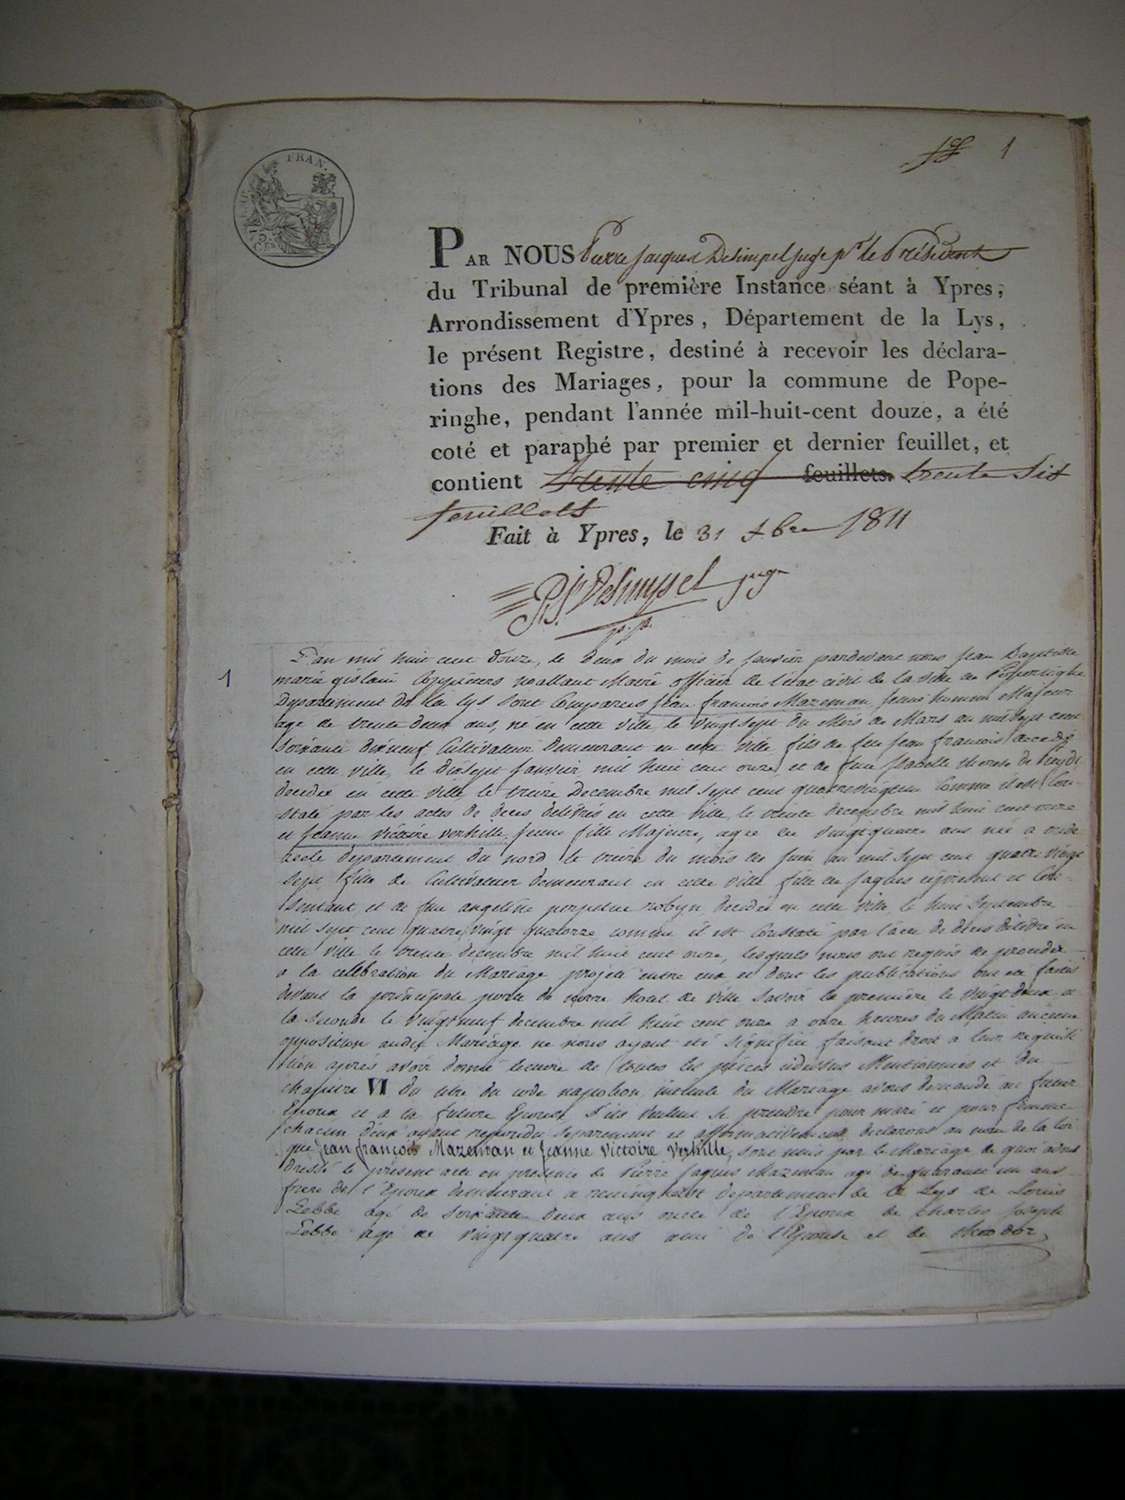 FRAN.
1
PAR NOUS Pierre Jacques Desimpel juge pr le Président
du Tribunal de première Instance séant à Ypres,
Arrondissement d'Ypres, Département de la Lys,
le présent Registre, destiné à recevoir les déclara-
tions des Mariages, pour la commune de Pope-
ringhe, pendant l'année mil-huit-cent douze, a été
coté et paraphé par premier et dernier feuillet, et
contient trente cinq feuillets. trente six
feuillets
Fait à Ypres, le 31 Xbre 1811
P.J. Desimpel juge
1
L'an mil huit cent douze, le deux du mois de Janvier pardevant nous Jean Baptiste
marie gislain maire officier de l'état civil de la ville de Poperinghe
Département de la Lys sont comparus jean francois Mazeman jeune homme Majeur
agé de trente deux ans, né en cette ville le vingt sept du Mois de Mars au mil sept cent
soixante dixneuf Cultivateur demeurant en cette ville fils de feu jean francois décédé
en cette ville, le dixsept janvier mil huit cent onze et de feue Isabelle therese de
decedée en cette ville, le treize decembre mil sept cent quatrevingt comme il est Con-
staté par les actes de deces delivrés en cette ville, le trente decembre mil huit cent onze
et jeanne victoire verhille, jeune fille Majeure, agée de vingtquatre ans née a
departement du nord le treize du mois de juin au mil sept cent quatre vingt
sept fille de Cultivateur demeurant en cette ville fille de jaques et con-
sentant et de feue angeline perpetue robyn decedée en cette ville le huit septembre
mil sept cent quatre vingt quatorze comme il est constaté par l'acte de déces délivré en
cette ville le trente decembre mil huit cent onze, lesquels nous ont requis de proceder
a la celébration du Mariage projeté entre eux et dont les publications ont été faites
devant la principale porte de notre hotel de ville savoir la premiere le vingt deux et
la seconde le vingtneuf decembre mil huit cent onze a onze heures du Matin aucune
opposition audit Mariage ne nous ayant été signifiée faisant droit a leur requisi
tion après avoir donné lecture de toutes les pièces cidessus Mentionnées et du
chapitre VI du titre du code napoléon intitulé du Mariage avons demandé au futur
Epoux et a la future Epouse s'ils veulent se prendre pour mari et pour femme
chacun d'eux ayant repondu separement et affirmativement declarons au nom de la loi
que Jean François Mazeman et Jeanne Victoire Verhille, sont unis par le Mariage de quoi avons
dressé le présent acte en présence de Pierre Jaques Mazeman agé de quarante un ans
frere de l'Epoux demeurant a reninghelst departement de la Lys de Louis
Lebbe agé de soixante deux ans oncle de l'Epoux de Charles Joseph
Lebbe agé de vingtquatre ans ami de l'Epouse et de theodor,